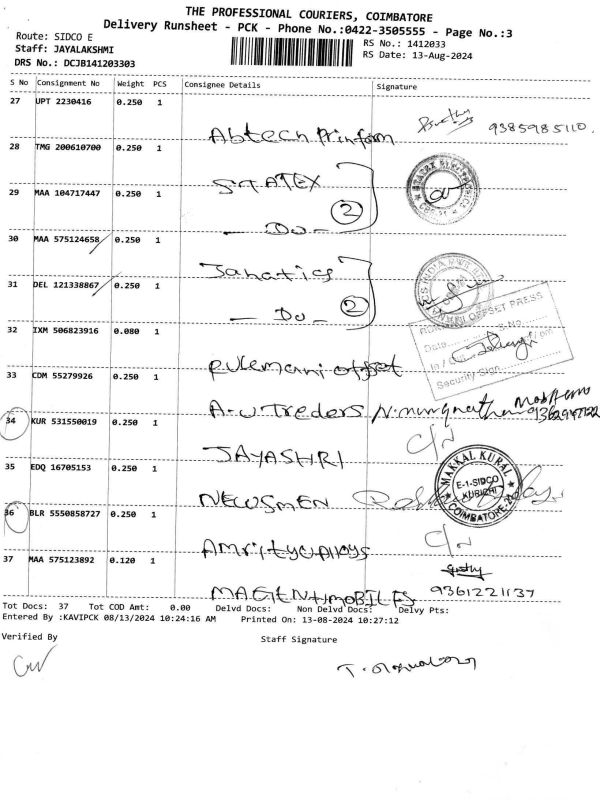 THE PROFESSIONAL COURIERS, COIMBATORE
Delivery Runsheet - PCK - Phone No.:0422-3505555 - Page No.:3
Route: SIDCO E
Staff: JAYALAKSHMI
DRS No.: DCJB141203303
RS No.: 1412033
RS Date: 13-Aug-2024
S No Consignment No Weight PCS Consignee Details Signature
27 UPT 2230416 0.250 1
Abtech Prinform 9385985110.
28 TMG 200610700 0.250 1
STATEX
29 MAA 104717447 0.250 1
- Do - 2
30 MAA 575124658 0.250 1
Janatics
31 DEL 121338867 0.250 1
- Do - 2
32 IXM 506823916 0.080 1
OFFSET PRESS
Date S.No
Security Sign
33 CDM 55279926 0.250 1
34 KUR 531550019 0.250 1
C/N
JAYASHRI
35 EDQ 16705153 0.250 1
MAKKAL KURAL
E-1-SIDCO
KURICHI
COIMBATORE-21
NEWSMEN
36 BLR 5550858727 0.250 1
C/N
37 MAA 575123892 0.120 1
9361221137
Tot Docs: 37 Tot COD Amt: 0.00 Delvd Docs: Non Delvd Docs: Delvy Pts:
Entered By :KAVIPCK 08/13/2024 10:24:16 AM Printed On: 13-08-2024 10:27:12
Verified By Staff Signature